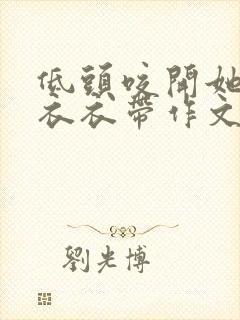 低頭咬開她
衣衣帶作文
劉光博